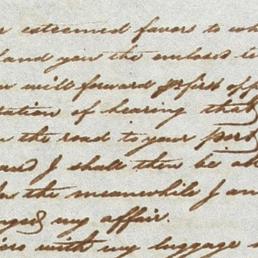 esteemed favors to
hand you the enclosed
will forward pr first of
tation of hearing that
the road to your port
and I shall then be
the meanwhile I am
my affair.
with my luggage